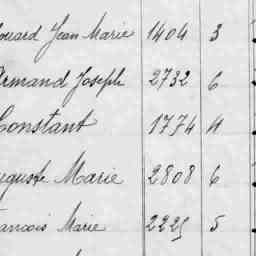 ouard Jean Marie 1404 3
rmand Joseph 2732 6
Constant 1774 4
uguste Marie 2808 6
rancois Marie 2225 5